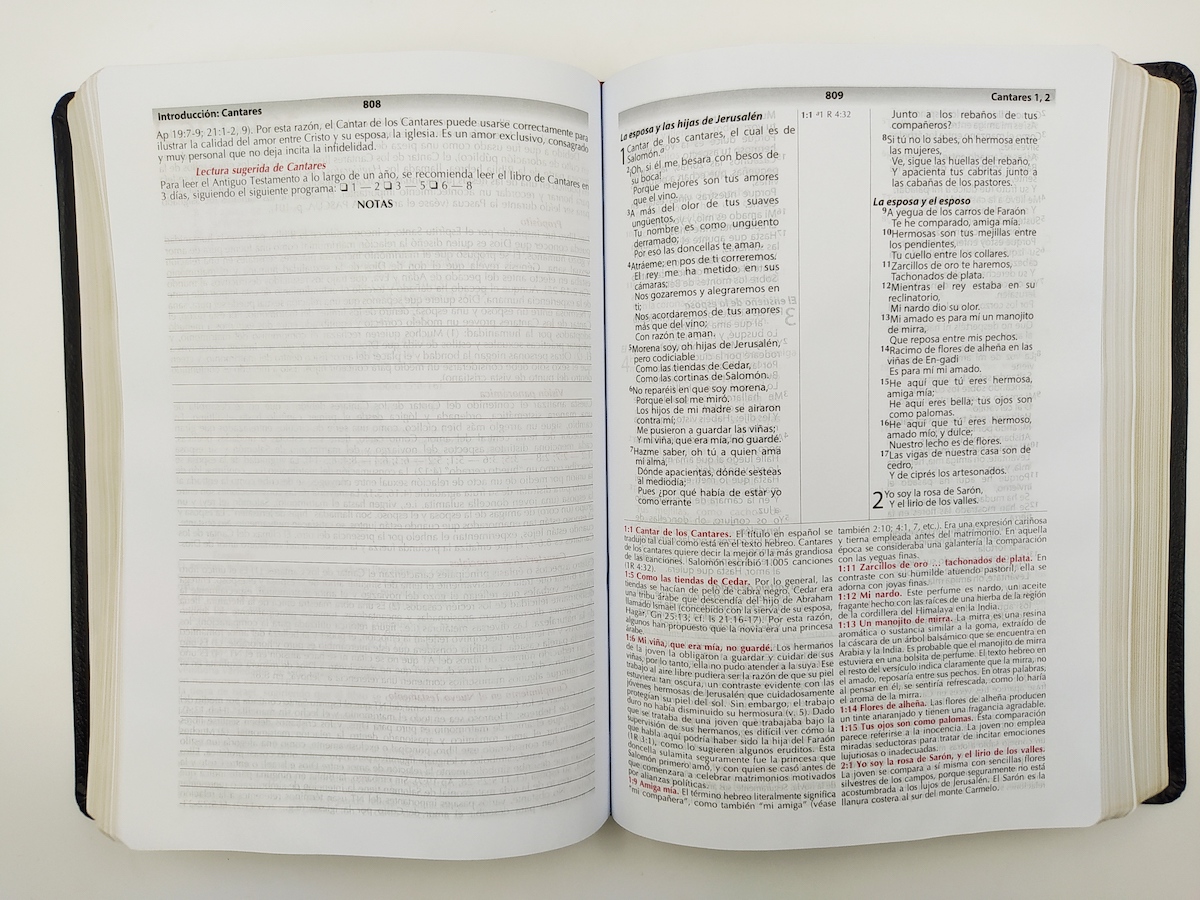 Introducción: Cantares
808
Ap 19:7-9; 21:1-2, 9). Por esta razón, el Cantar de los Cantares puede usarse correctamente para
ilustrar la calidad del amor entre Cristo y su esposa, la iglesia. Es un amor exclusivo, consagrado
y muy personal que no deja incita la infidelidad.
Lectura sugerida de Cantares
Para leer el Antiguo Testamento a lo largo de un año, se recomienda leer el libro de Cantares en
3 días, siguiendo el siguiente programa: ❏ 1 — 2 ❏ 3 — 5 ❏ 6 — 8
NOTAS
809
Cantares 1, 2
La esposa y las hijas de Jerusalén
1 Cantar de los cantares, el cual es de
Salomón.a
2¡Oh, si él me besara con besos de
su boca!
Porque mejores son tus amores
que el vino.
3A más del olor de tus suaves
ungüentos,
Tu nombre es como ungüento
derramado;
Por eso las doncellas te aman.
4Atráeme; en pos de ti correremos.
El rey me ha metido en sus
cámaras;
Nos gozaremos y alegraremos en
ti;
Nos acordaremos de tus amores
más que del vino;
Con razón te aman.
5Morena soy, oh hijas de Jerusalén,
pero codiciable
Como las tiendas de Cedar,
Como las cortinas de Salomón.
6No reparéis en que soy morena,
Porque el sol me miró.
Los hijos de mi madre se airaron
contra mí;
Me pusieron a guardar las viñas;
Y mi viña, que era mía, no guardé.
7Hazme saber, oh tú a quien ama
mi alma,
Dónde apacientas, dónde sesteas
al mediodía;
Pues ¿por qué había de estar yo
como errante
1:1 a1 R 4:32
Junto a los rebaños de tus
compañeros?
8Si tú no lo sabes, oh hermosa entre
las mujeres,
Ve, sigue las huellas del rebaño,
Y apacienta tus cabritas junto a
las cabañas de los pastores.
La esposa y el esposo
9A yegua de los carros de Faraón
Te he comparado, amiga mía.
10Hermosas son tus mejillas entre
los pendientes,
Tu cuello entre los collares.
11Zarcillos de oro te haremos,
Tachonados de plata.
12Mientras el rey estaba en su
reclinatorio,
Mi nardo dio su olor.
13Mi amado es para mí un manojito
de mirra,
Que reposa entre mis pechos.
14Racimo de flores de alheña en las
viñas de En-gadi
Es para mí mi amado.
15He aquí que tú eres hermosa,
amiga mía;
He aquí eres bella; tus ojos son
como palomas.
16He aquí que tú eres hermoso,
amado mío, y dulce;
Nuestro lecho es de flores.
17Las vigas de nuestra casa son de
cedro,
Y de ciprés los artesonados.
2 Yo soy la rosa de Sarón,
Y el lirio de los valles.
1:1 Cantar de los Cantares. El título en español se
tradujo tal cual como está en el texto hebreo. Cantares
de los cantares quiere decir la mejor o la más grandiosa
de las canciones. Salomón escribió 1.005 canciones
(1R 4:32).
1:5 Como las tiendas de Cedar. Por lo general, las
tiendas se hacían de pelo de cabra negro. Cedar era
una tribu árabe que descendía del hijo de Abraham
llamado Ismael (concebido con la sierva de su esposa,
Hagar, Gn 25:13; cf. Is 21:16-17). Por esta razón,
algunos han propuesto que la novia era una princesa
árabe.
1:6 Mi viña, que era mía, no guardé. Los hermanos
de la joven la obligaron a guardar y cuidar de sus
viñas, por lo tanto, ella no pudo atender a la suya. Ese
trabajo al aire libre pudiera ser la razón de que su piel
estuviera tan oscura, un contraste evidente con las
jóvenes hermosas de Jerusalén que cuidadosamente
protegían su piel del sol. Sin embargo, el trabajo
duro no había disminuido su hermosura (v. 5). Dado
que se trataba de una joven que trabajaba bajo la
supervisión de sus hermanos, es difícil ver cómo la
que habla aquí podría haber sido la hija del Faraón
(1R 3:1), como lo sugieren algunos eruditos. Esta
doncella sulamita seguramente fue la princesa que
Salomón primero amó, y con quien se casó antes de
que comenzara a celebrar matrimonios motivados
por alianzas políticas.
1:9 Amiga mía. El término hebreo literalmente significa
"mi compañera", como también "mi amiga" (véase
también 2:10; 4:1, 7, etc.). Era una expresión cariñosa
y tierna empleada antes del matrimonio. En aquella
época se consideraba una galantería la comparación
con las yeguas finas.
1:11 Zarcillos de oro … tachonados de plata. En
contraste con su humilde atuendo pastoril, ella se
adorna con joyas finas.
1:12 Mi nardo. Este perfume es nardo, un aceite
fragante hecho con las raíces de una hierba de la región
de la cordillera del Himalaya en la India.
1:13 Un manojito de mirra. La mirra es una resina
aromática o sustancia similar a la goma, extraído de
la cáscara de un árbol balsámico que se encuentra en
Arabia y la India. Es probable que el manojito de mirra
estuviera en una bolsita de perfume. El texto hebreo en
el resto del versículo indica claramente que la mirra, no
el amado, reposaría entre sus pechos. En otras palabras,
al pensar en él, se sentiría refrescada, como lo haría
el aroma de la mirra.
1:14 Flores de alheña. Las flores de alheña producen
un tinte anaranjado y tienen una fragancia agradable.
1:15 Tus ojos son como palomas. Esta comparación
parece referirse a la inocencia. La joven no emplea
miradas seductoras para tratar de incitar emociones
lujuriosas o inadecuadas.
2:1 Yo soy la rosa de Sarón, y el lirio de los valles.
La joven se compara a sí misma con sencillas flores
silvestres de los campos, porque seguramente no está
acostumbrada a los lujos de Jerusalén. El Sarón es la
llanura costera al sur del monte Carmelo.